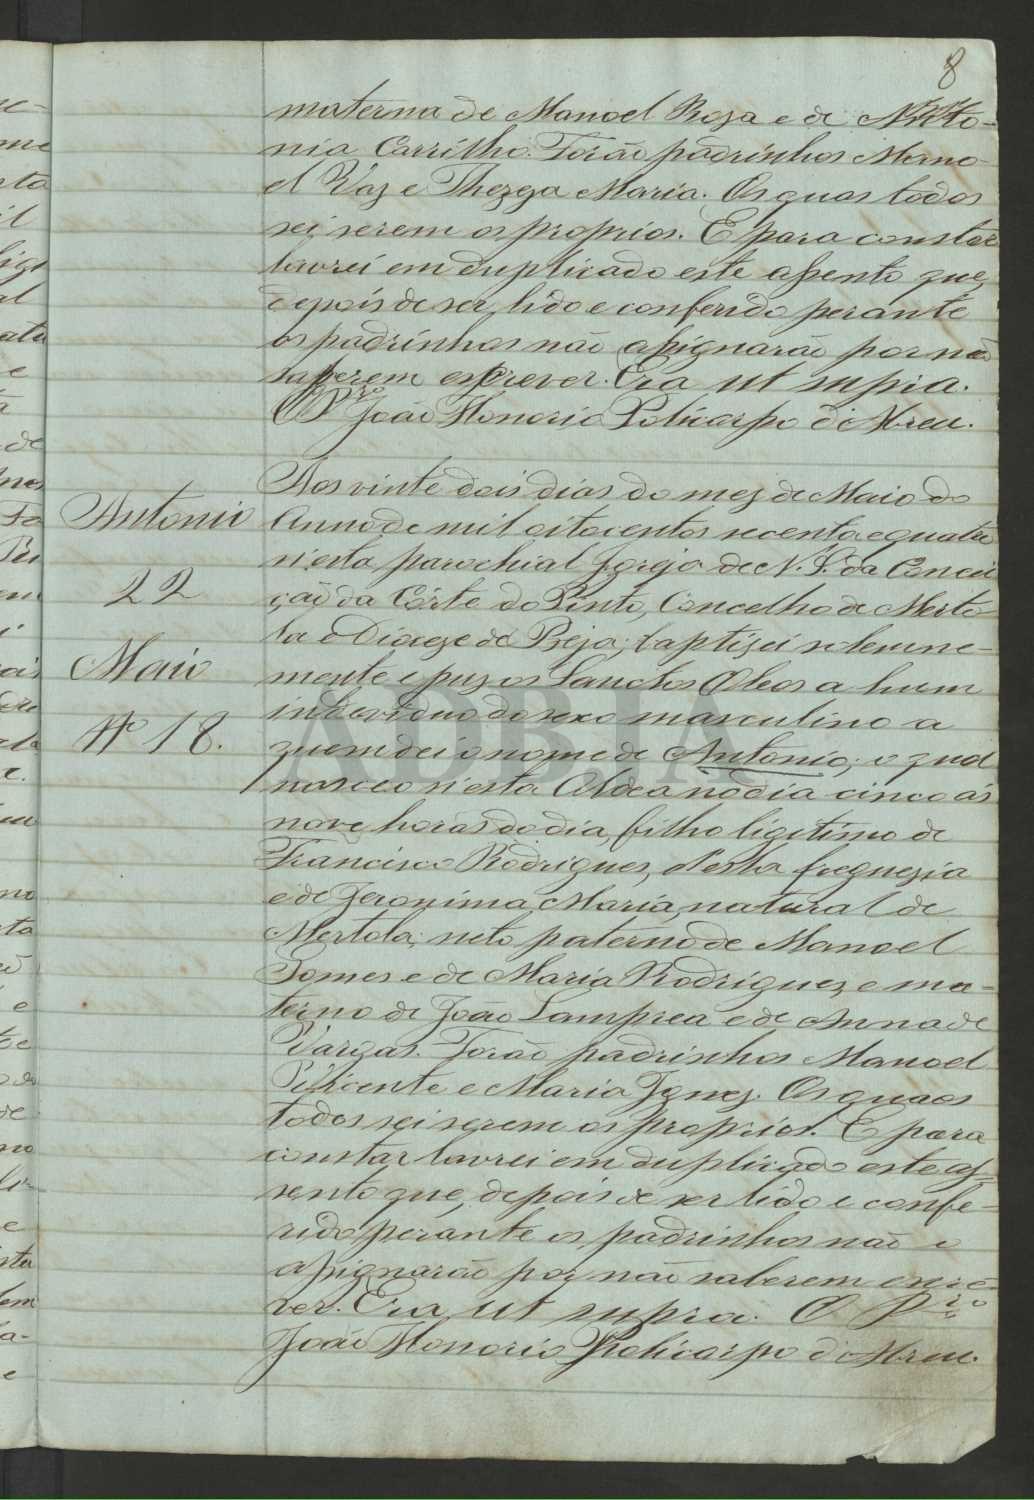 8
materna de Manoel Roza e de Anto-
nia Carrilho. Forão padrinhos Mano-
el Vaz e Thereza Maria. Os quaes todos
sei serem os proprios. E para constar
lavrei em duplicado este assento que,
depois de ser lido e conferido perante
os padrinhos não assignarão por não
saberem escrever. Era ut supra.
O Pro João Honorio Policarpo d'Abreu.
Antonio
22
Maio
Nº 18.
Aos vinte dois dias do mez de Maio do
Anno de mil oitocentos secenta e quatro
n'esta parochial Igreja de N. S. da Concei
ção da Côrte do Pinto, Concelho de Merto-
la e Diocese de Beja; baptizei solemne-
mente e puz os Sanctos Oleos a hum
individuo do sexo masculino a
quem dei o nome de Antonio; o qual
nasceo n'esta Aldea no dia cinco ás
nove horas do dia, filho ligitimo de
Francisco Rodrigues, d'esta freguezia
e de Jeronima Maria, natural de
Mertola; neto paterno de Manoel
Gomes e de Maria Rodrigues, e ma-
terno de João Lamprea e de Anna de
Vargas. Forão padrinhos Manoel
Vicente e Maria Ignez. Os quaes
todos sei serem os proprios. E para
constar lavrei em duplicado este as-
sento que, depois de ser lido e confe-
rido perante os padrinhos não o
assignarão por não saberem escre-
ver. Era ut supra. O Pro
João Honorio Policarpo d'Abreu.
ADBJA